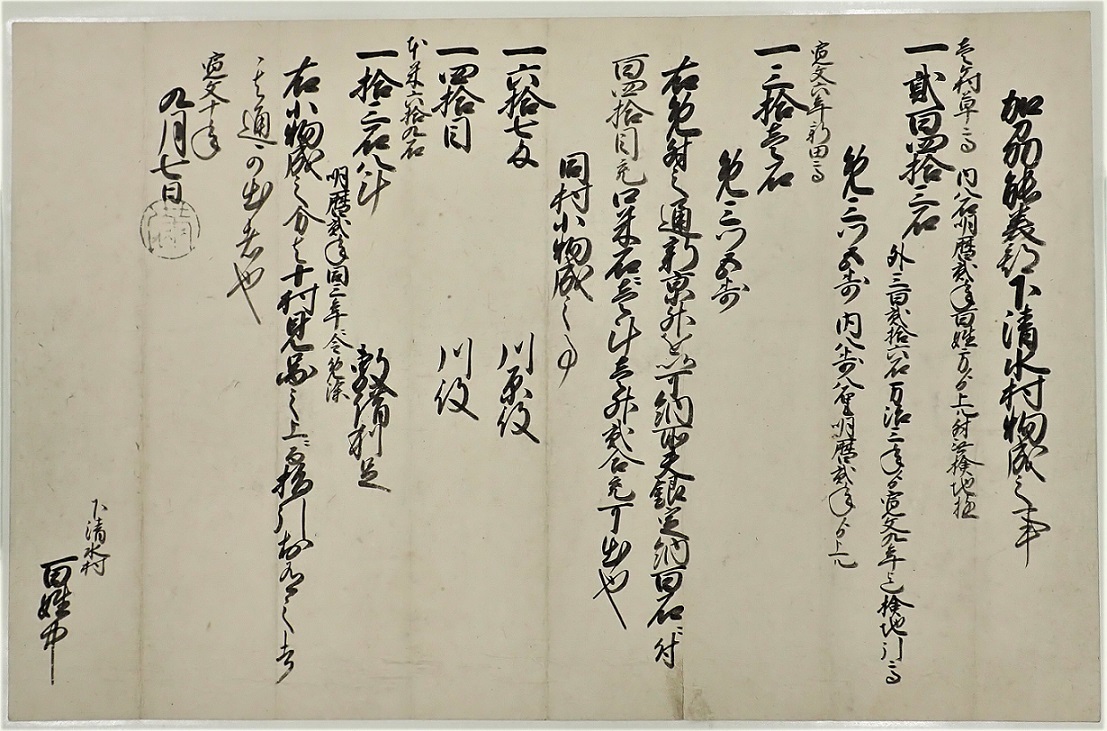 加州能美郡下清水村物成之事
壱村草高 内八石明暦弐年百姓方ゟ上ルニ付無検地極
一 弐百四拾三石
外三百弐拾六石万治三年ゟ寛文九年迄検地引高
免三ツ五歩 内八歩 明暦弐年ゟ上ル
寛文六年新田高
一 三拾壱石
免三ツ五歩
右免付之通新京升を以可納所夫銀定納百石ニ付
百四拾目充口米石ニ壱斗壱升弐合充可出也
同村小物成之事
一 六拾七匁 川原役
一 四拾目 川役
本米六拾九石
一 拾三石八斗 敷借利足
明暦弐年同三年ニ令免除
右小物成之分者十村見図之上ニ而指引於有之者
其通可出者也
寛文十年
九月七日
下清水村
百姓中